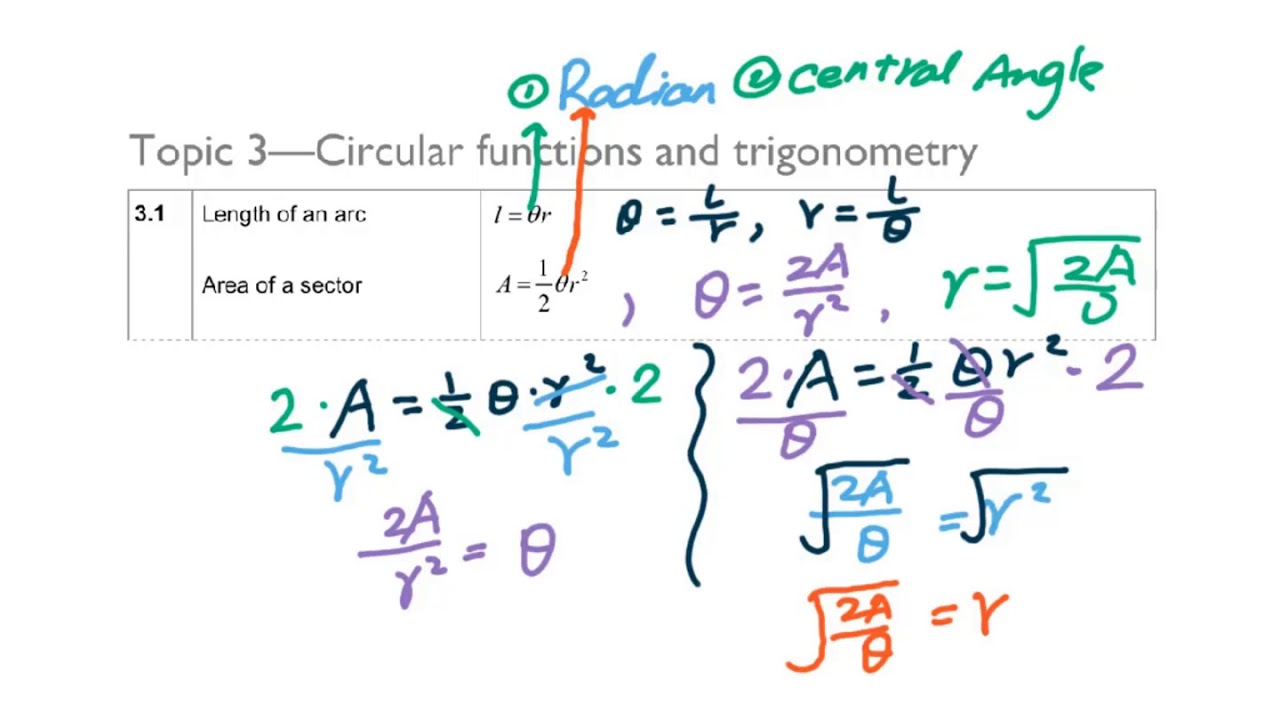 ① Radian ② Central Angle
Topic 3—Circular functions and trigonometry
3.1 Length of an arc l = θr θ = l/r, r = l/θ
Area of a sector A = 1/2 θr², θ = 2A/r², r = √(2A/θ)
2·A/r² = 1/2 θ·r²/r²·2
2A/r² = θ
2·A/θ = 1/2 θ/θ r²·2
√(2A/θ) = √r²
√(2A/θ) = r